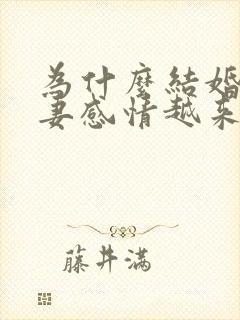 為什麼結婚
妻感情越來
藤井滿